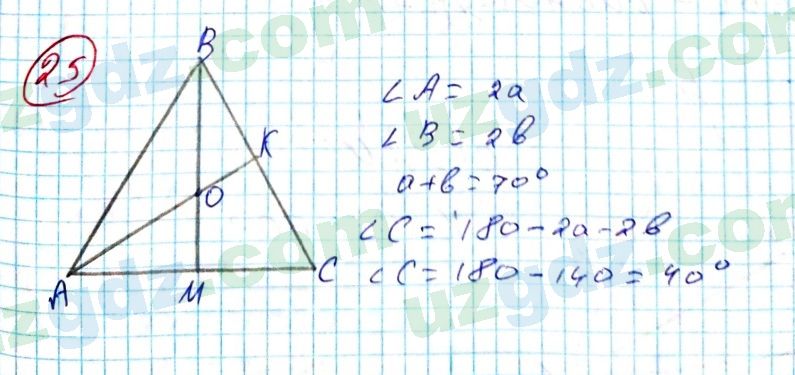 25
B
K
O
A
M
C
∠A = 2a
∠B = 2b
a+b=70°
∠C = 180-2a-2b
∠C = 180-140=40°
uzgdz.com
uzgdz.com
uzgdz.com
uzgdz.com